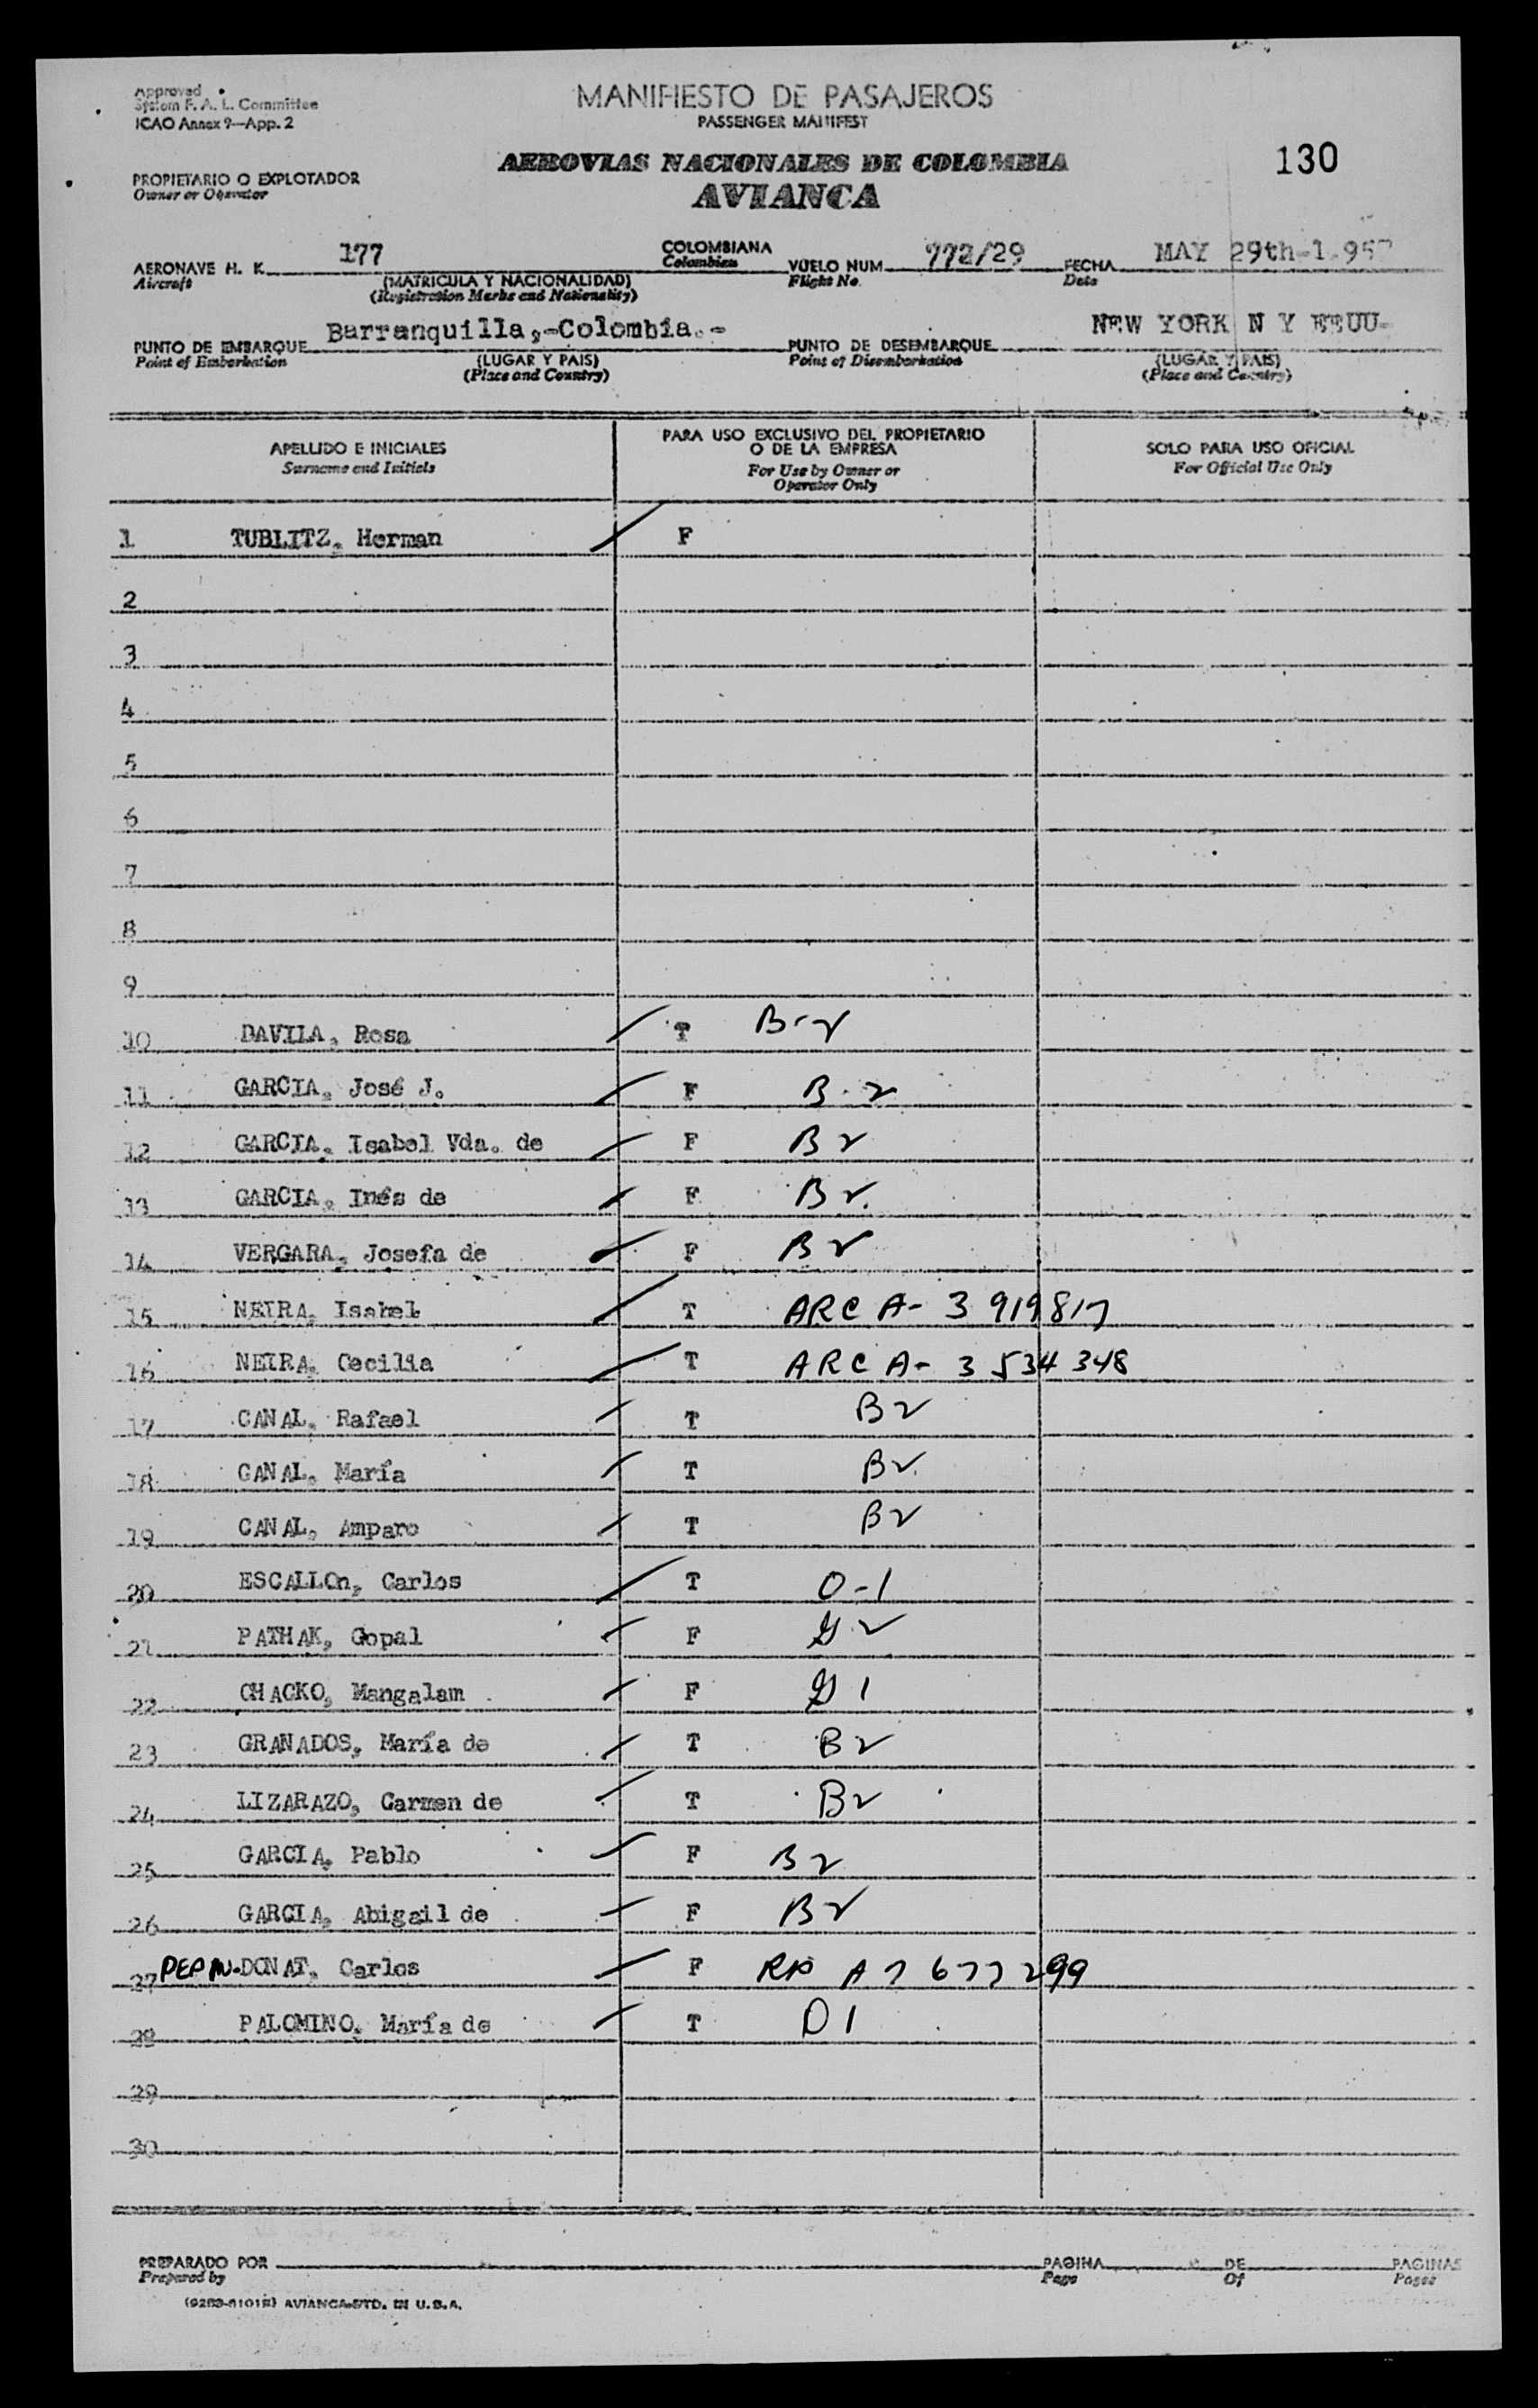 Approved
System F. A. L. Committee
ICAO Annex 9—App. 2
MANIFIESTO DE PASAJEROS
PASSENGER MANIFEST
AEROVIAS NACIONALES DE COLOMBIA
AVIANCA
130
PROPIETARIO O EXPLOTADOR
Owner or Operator
AERONAVE H. K. 177 COLOMBIANA VUELO NUM 772/29 FECHA MAY 29th-1.957
Aircraft (MATRICULA Y NACIONALIDAD) Colombian Flight No. Date
(Registration Marks and Nationality)
PUNTO DE EMBARQUE Barranquilla,-Colombia.- PUNTO DE DESEMBARQUE NEW YORK N Y EEUU-
Point of Embarkation (LUGAR Y PAIS) Point of Disembarkation (LUGAR Y PAIS)
(Place and Country) (Place and Country)
APELLIDO E INICIALES
Surname and Initials
PARA USO EXCLUSIVO DEL PROPIETARIO
O DE LA EMPRESA
For Use by Owner or
Operator Only
SOLO PARA USO OFICIAL
For Official Use Only
1 TUBLITZ, Herman F
2
3
4
5
6
7
8
9
10 DAVILA, Rosa T B-2
11 GARCIA, José J. F B-2
12 GARCIA, Isabel Vda. de F B2
13 GARCIA, Inés de F B2.
14 VERGARA, Josefa de F B2
15 NEIRA, Isabel T ARC A- 3 919 817
16 NEIRA, Cecilia T ARC A- 3 534 348
17 CANAL, Rafael T B2
18 CANAL, María T B2
19 CANAL, Amparo T B2
20 ESCALLOn, Carlos T O-1
21 PATHAK, Gopal F G2
22 CHACKO, Mangalam F G1
23 GRANADOS, María de T B2
24 LIZARAZO, Carmen de T B2
25 GARCIA, Pablo F B2
26 GARCIA, Abigail de F B2
27 DONAT, Carlos F A7 677 299
28 PALOMINO, María de T O1
29
30
PREPARADO POR PAGINA DE PAGINAS
Prepared by Page Of Pages
AVIANCA-LTD. IN U.S.A.